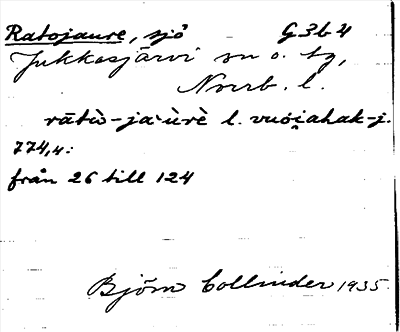 Ratojaure, sjö G3b4
Jukkasjärvi sn o. tg,
Norrb. l.
rātù-ja`ùrè l. vuoi̭ahak-j.
774,4:
från 26 till 124
Björn Collinder 1935.